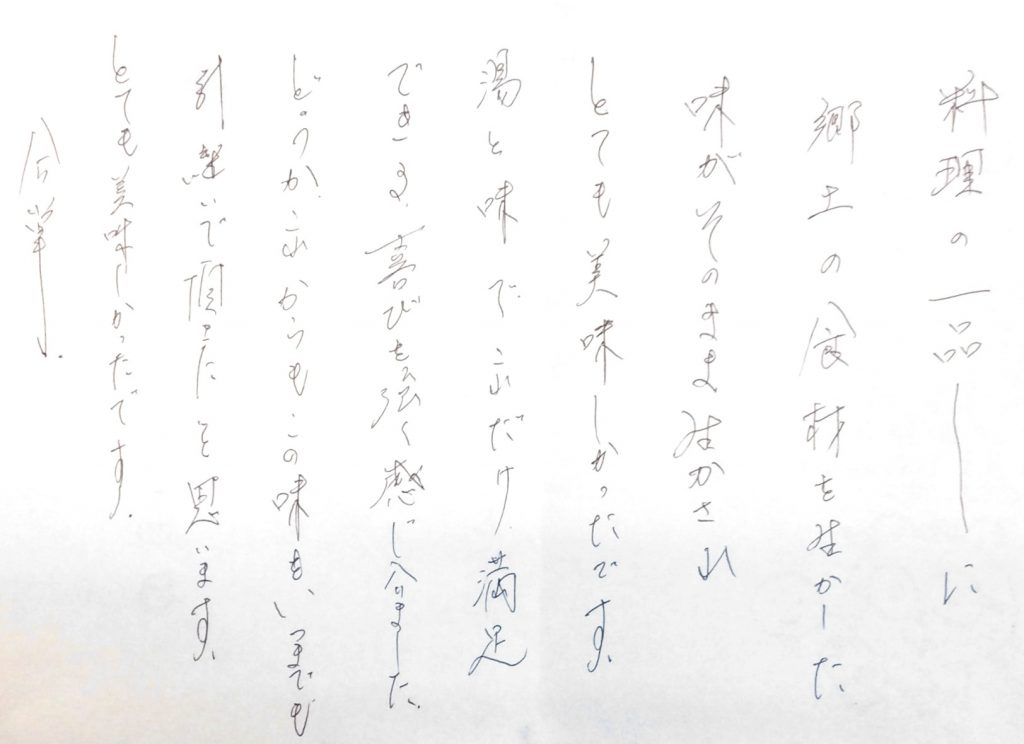 料理の一品一品に
郷土の食材を生かした
味がそのまま生かされ
とても美味しかったです。
湯と味でこれだけ満足
できる喜びを強く感じ入りました。
どうかこれからもこの味をいつまでも
引継いで頂きたいと思います。
とても美味しかったです。
合掌.